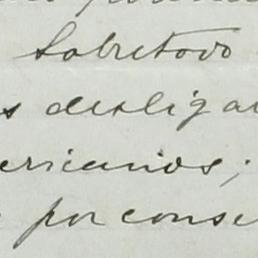 Sobretodo
s desliga
ericanos;
por conse